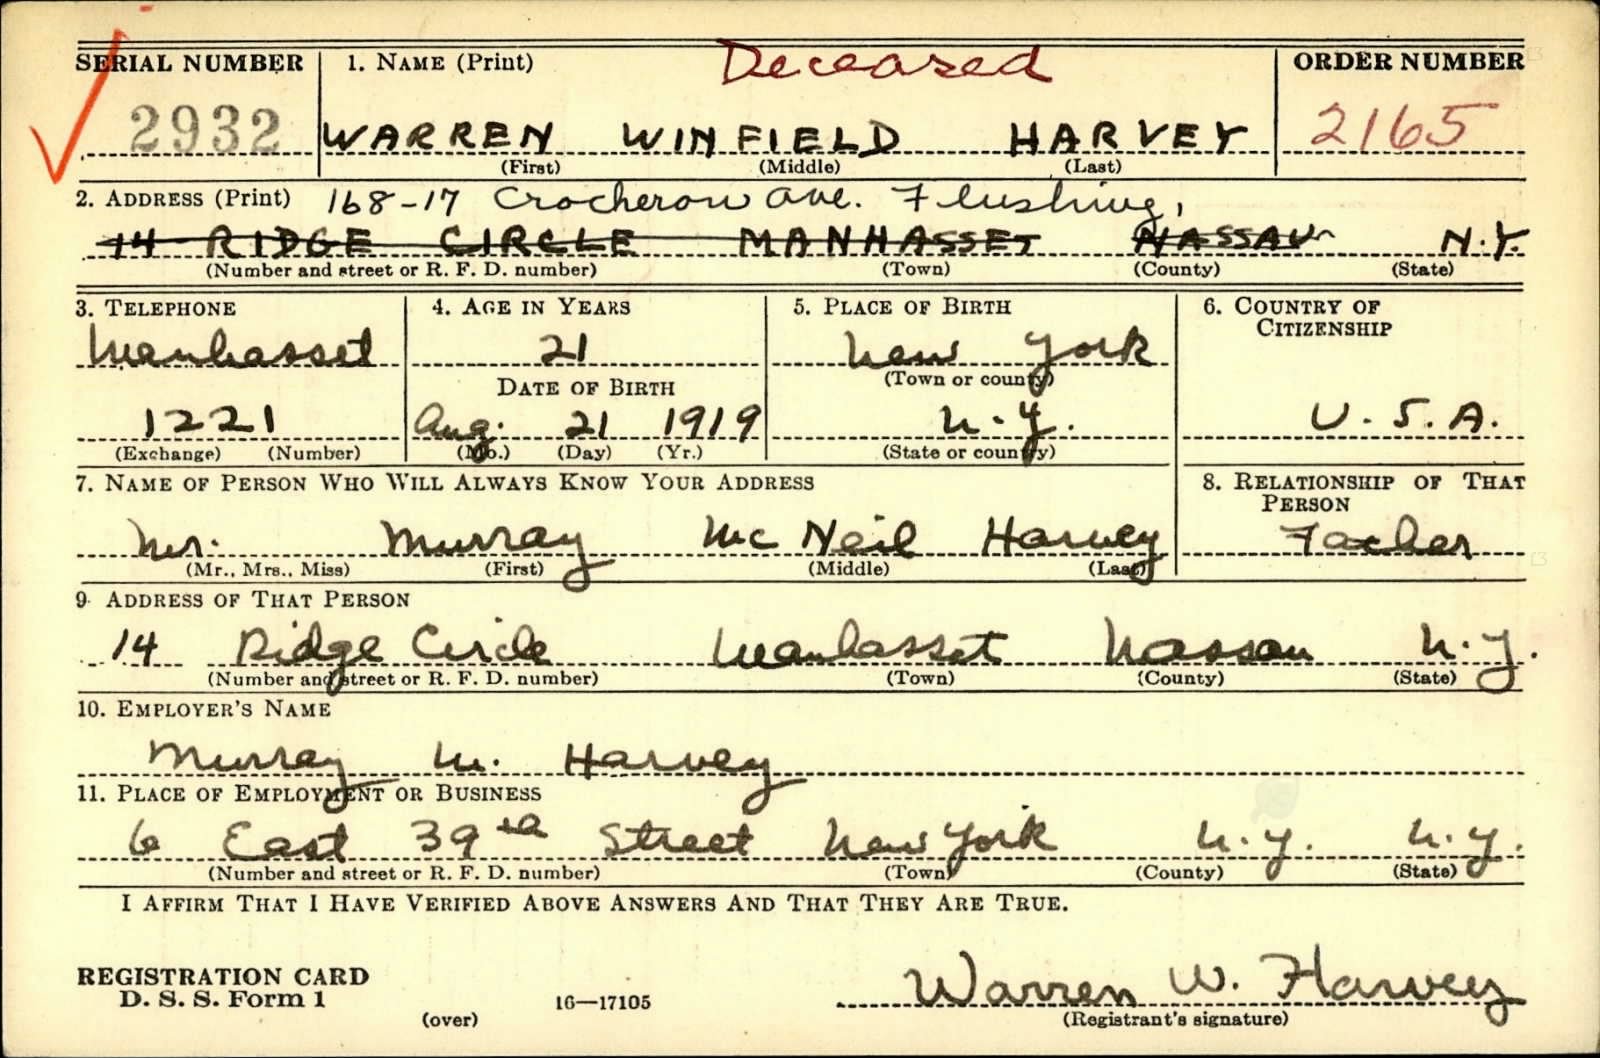 SERIAL NUMBER 1. NAME (Print) Deceased ORDER NUMBER
2932 WARREN WINFIELD HARVEY 2165
(First) (Middle) (Last)
2. ADDRESS (Print) 168-17 Crocheron Ave. Flushing,
14 RIDGE CIRCLE MANHASSET NASSAU N.Y.
(Number and street or R. F. D. number) (Town) (County) (State)
3. TELEPHONE 4. AGE IN YEARS 5. PLACE OF BIRTH 6. COUNTRY OF CITIZENSHIP
Manhasset 21 New York
DATE OF BIRTH (Town or county)
1221 Aug. 21 1919 N.Y. U.S.A.
(Exchange) (Number) (Mo.) (Day) (Yr.) (State or country)
7. NAME OF PERSON WHO WILL ALWAYS KNOW YOUR ADDRESS 8. RELATIONSHIP OF THAT PERSON
Mr. Murray McNeil Harvey Father
(Mr., Mrs., Miss) (First) (Middle) (Last)
9. ADDRESS OF THAT PERSON
14 Ridge Circle Manhasset Nassau N.Y.
(Number and street or R. F. D. number) (Town) (County) (State)
10. EMPLOYER'S NAME
Murray M. Harvey
11. PLACE OF EMPLOYMENT OR BUSINESS
6 East 39th Street New York N.Y. N.Y.
(Number and street or R. F. D. number) (Town) (County) (State)
I AFFIRM THAT I HAVE VERIFIED ABOVE ANSWERS AND THAT THEY ARE TRUE.
REGISTRATION CARD
D. S. S. Form 1 16—17105 Warren W. Harvey
(over) (Registrant's signature)